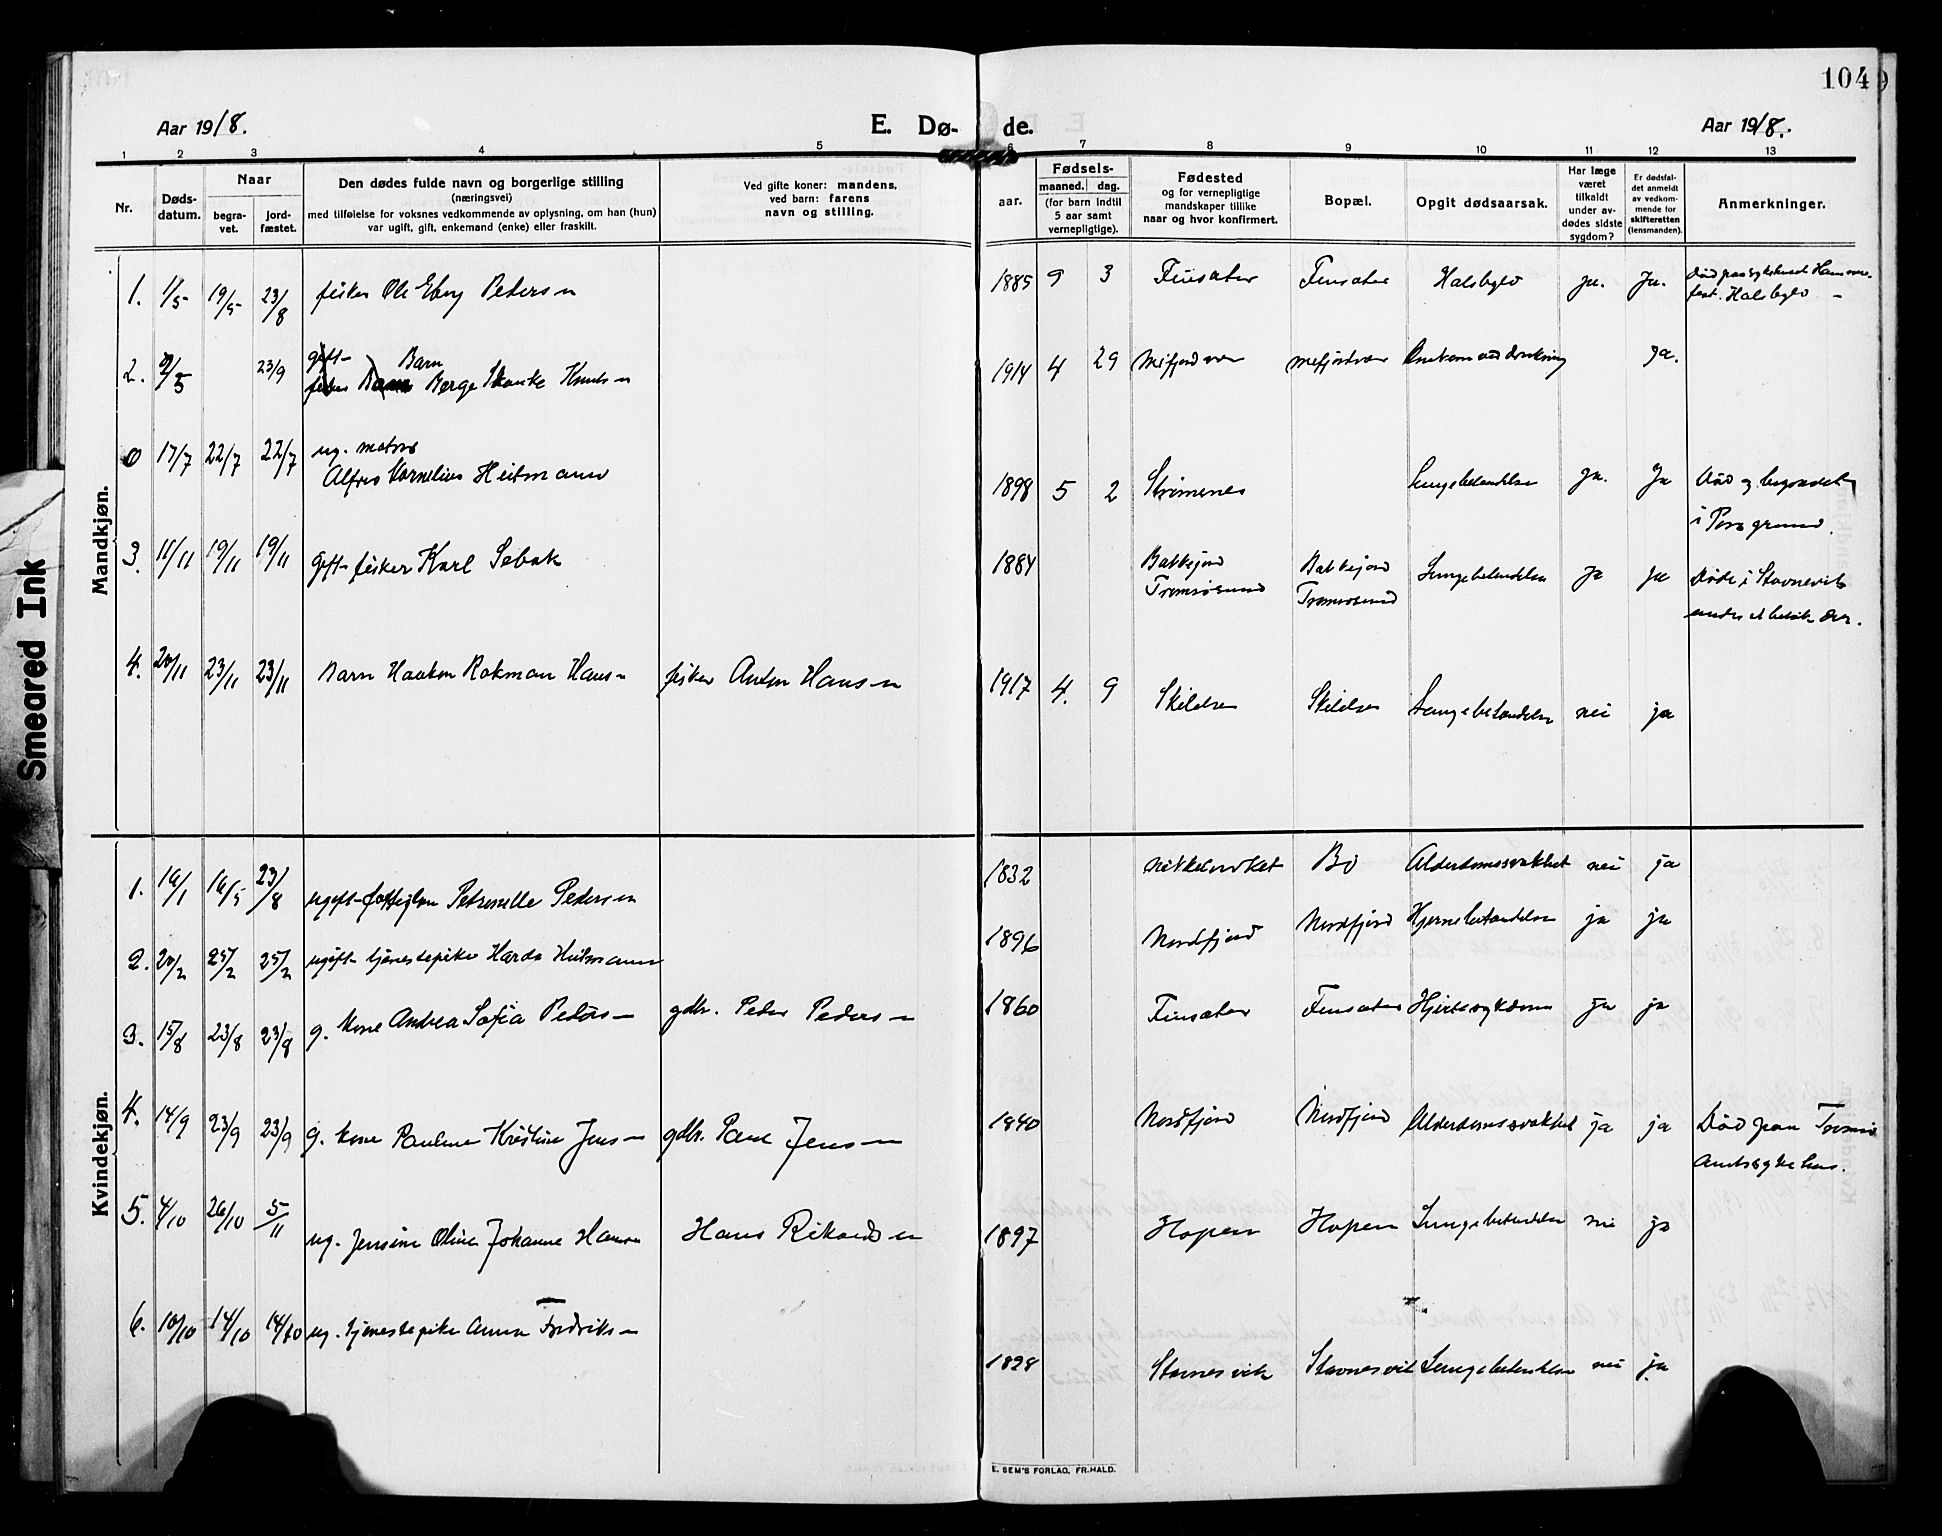 104
Aar 1918.
E. Dø-
de.
Aar 1918.
1 2 3 4 5 6 7 8 9 10 11 12 13
Nr.
Døds-
datum.
Naar
begra-
vet.
jord-
fæstet.
Den dødes fulde navn og borgerlige stilling
(næringsvei)
med tilføielse for voksnes vedkommende av oplysning, om han (hun)
var ugift, gift, enkemand (enke) eller fraskilt.
Ved gifte koner: mandens,
ved barn: farens
navn og stilling.
Fødsels-
aar.
maaned.
dag.
(for barn indtil
5 aar samt
vernepligtige).
Fødested
og for vernepligtige
mandskaper tillike
naar og hvor konfirmert.
Bopæl.
Opgit dødsaarsak.
Har læge
været
tilkaldt
under av-
dødes sidste
sygdom?
Er dødsfal-
det anmeldt
av vedkom-
mende for
skifteretten
(lensmanden).
Anmerkninger.
Smeared Ink
Mandkjøn.
1. 1/5 19/5 23/8 fisker Ole Petersen 1885 9 3 Finsæter Finsæter Halsbyld ja. Ja.
Død paa sykehuset Hammer-
fest. Halsbyld
2. 23/9 gift Barn
fisker Børge Skanke Knutsen 1914 4 29 Mefjordvær Mefjordvær ja.
0 17/7 22/7 22/7 ug. matros
Alfred Kornelius Heitmann 1898 5 2 Strømsnes Lungebetændelse ja. Ja Død og begravet
i Porsgrund.
3. 11/11 19/11 19/11 gift fisker Karl Sebak 1884 Bakkejord
Tromsøsund Bakkejord
Tromsøsund Lungebetændelse ja ja Døde i Stavnesvik
under et besøk der.
4. 20/11 23/11 23/11 Barn Haakon Rokman Hansen fisker Anton Hansen 1917 4. 9 Skilelsen Skilelsen Lungebetændelse nei ja
Kvindekjøn.
1. 16/1 16/5 23/8 ugift Petrenelle Pedersen 1832 Bø Alderdomssvakhet nei ja
2. 20/2 25/2 25/2 ugift tjenestepike Harda Heitmann 1896 Nordfjord Nordfjord Hjernebetændelse ja ja
3. 15/8 23/8 23/8 g. kone Andrea Sofia Pedersen gdbr. Peder Pedersen 1860 Finsæter Finsæter Hjertesykdom ja ja
4. 14/9 23/9 23/9 g. kone Pauline Kristine Jensen gdbr. Jensen 1840 Nordfjord Nordfjord Alderdomssvakhet ja ja Død paa Tromsø
Amtssykehus.
5. 4/10 26/10 5/11 ug. Jensine Oline Johanne Hansen Hans Rikardsen 1897 Hopen Hopen Lungebetændelse nei ja
6. 10/10 14/10 14/10 ug. tjenestepike Anna Fredriksen 1898 Stavnesvik Stavnesvik Lungebetændelse nei ja
E. SEM'S FORLAG, FR.HALD.